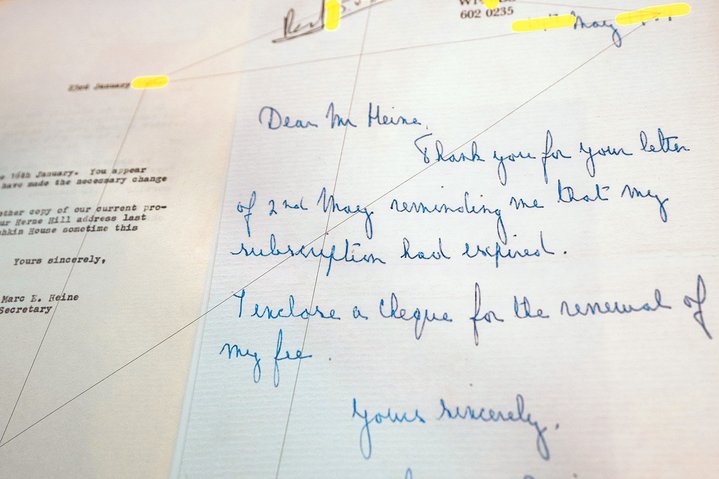 23rd January
16th January. You appear
have made the necessary change
other copy of our current pro-
ur Herne Hill address last
shkin House sometime this
Yours sincerely,
Marc E. Heine
Secretary
602 0235
May
Dear Mr Heine,
Thank you for your letter
of 2nd May reminding me that my
subscription had expired.
I enclose a cheque for the renewal of
my fee.
Yours sincerely,